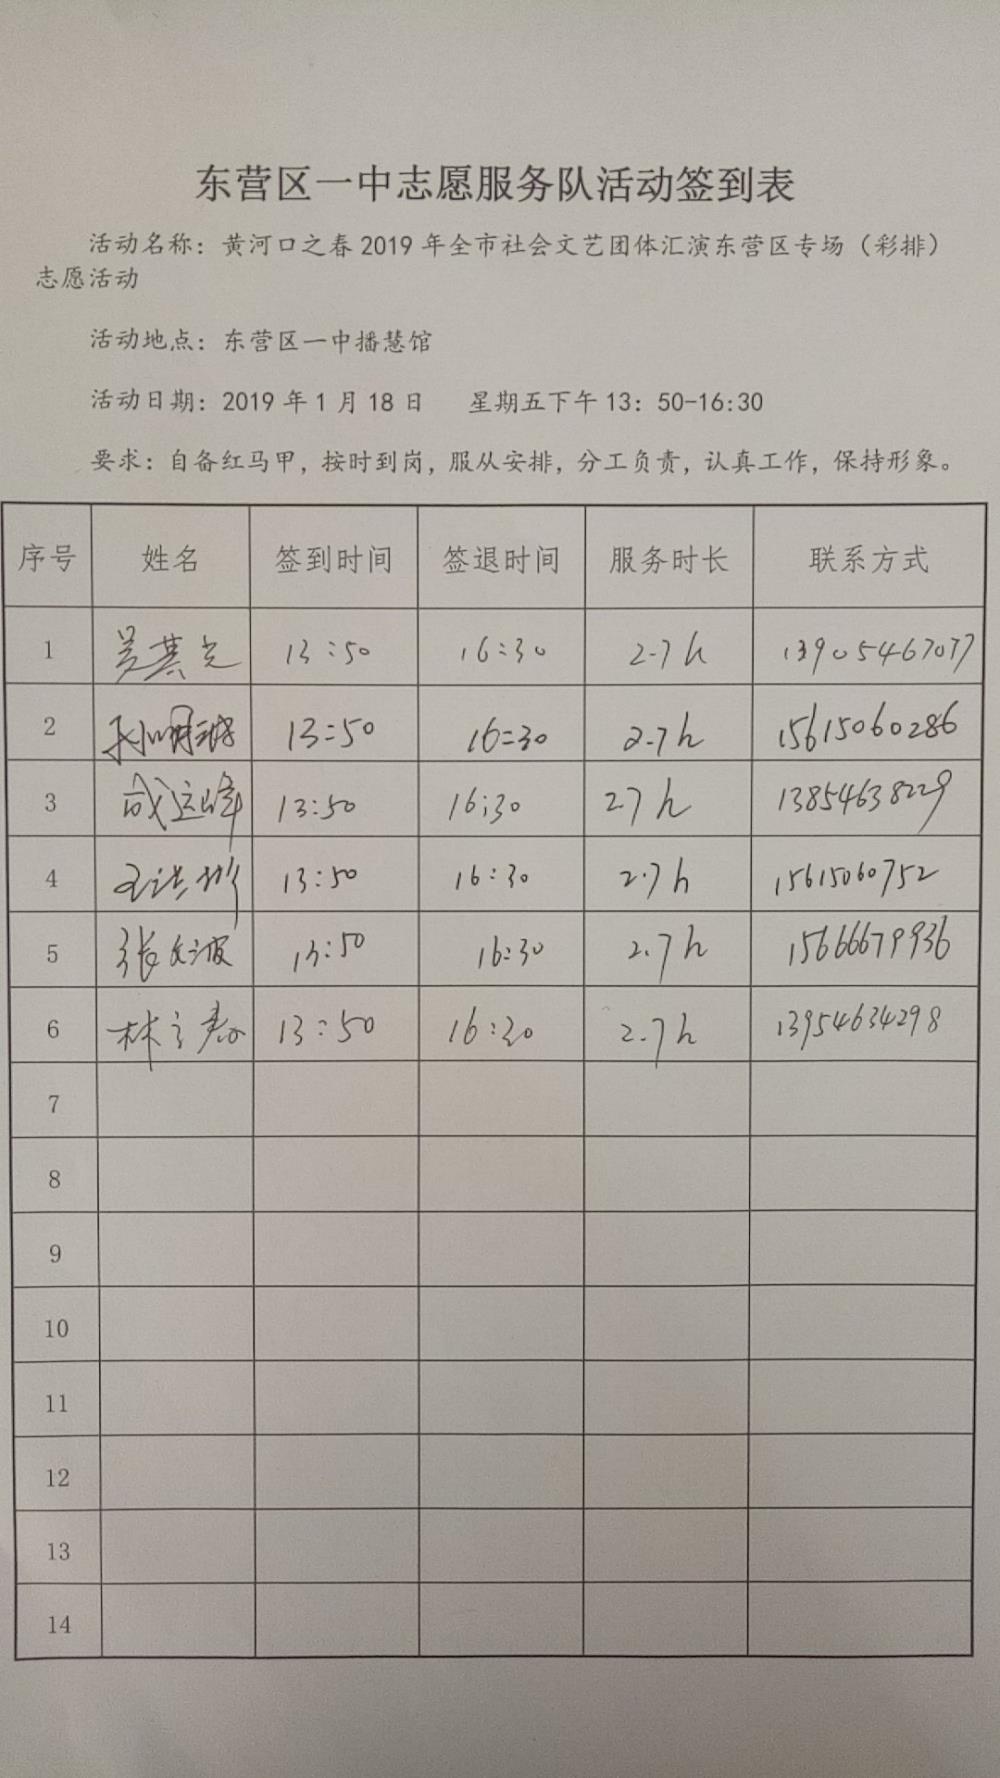 东营区一中志愿服务队活动签到表
活动名称：黄河口之春2019年全市社会文艺团体汇演东营区专场（彩排）
志愿活动
活动地点：东营区一中播慧馆
活动日期：2019年1月18日 星期五下午13：50-16:30
要求：自备红马甲，按时到岗，服从安排，分工负责，认真工作，保持形象。
序号 姓名 签到时间 签退时间 服务时长 联系方式
1 吴其光 13:50 16:30 2.7h 13905467077
2 13:50 16:30 2.7h 15615060286
3 成运峰 13:50 16:30 2.7h 13854638229
4 13:50 16:30 2.7h 15615060752
5 张文波 13:50 16:30 2.7h 15666679936
6 林立春 13:50 16:30 2.7h 13954634298
7
8
9
10
11
12
13
14